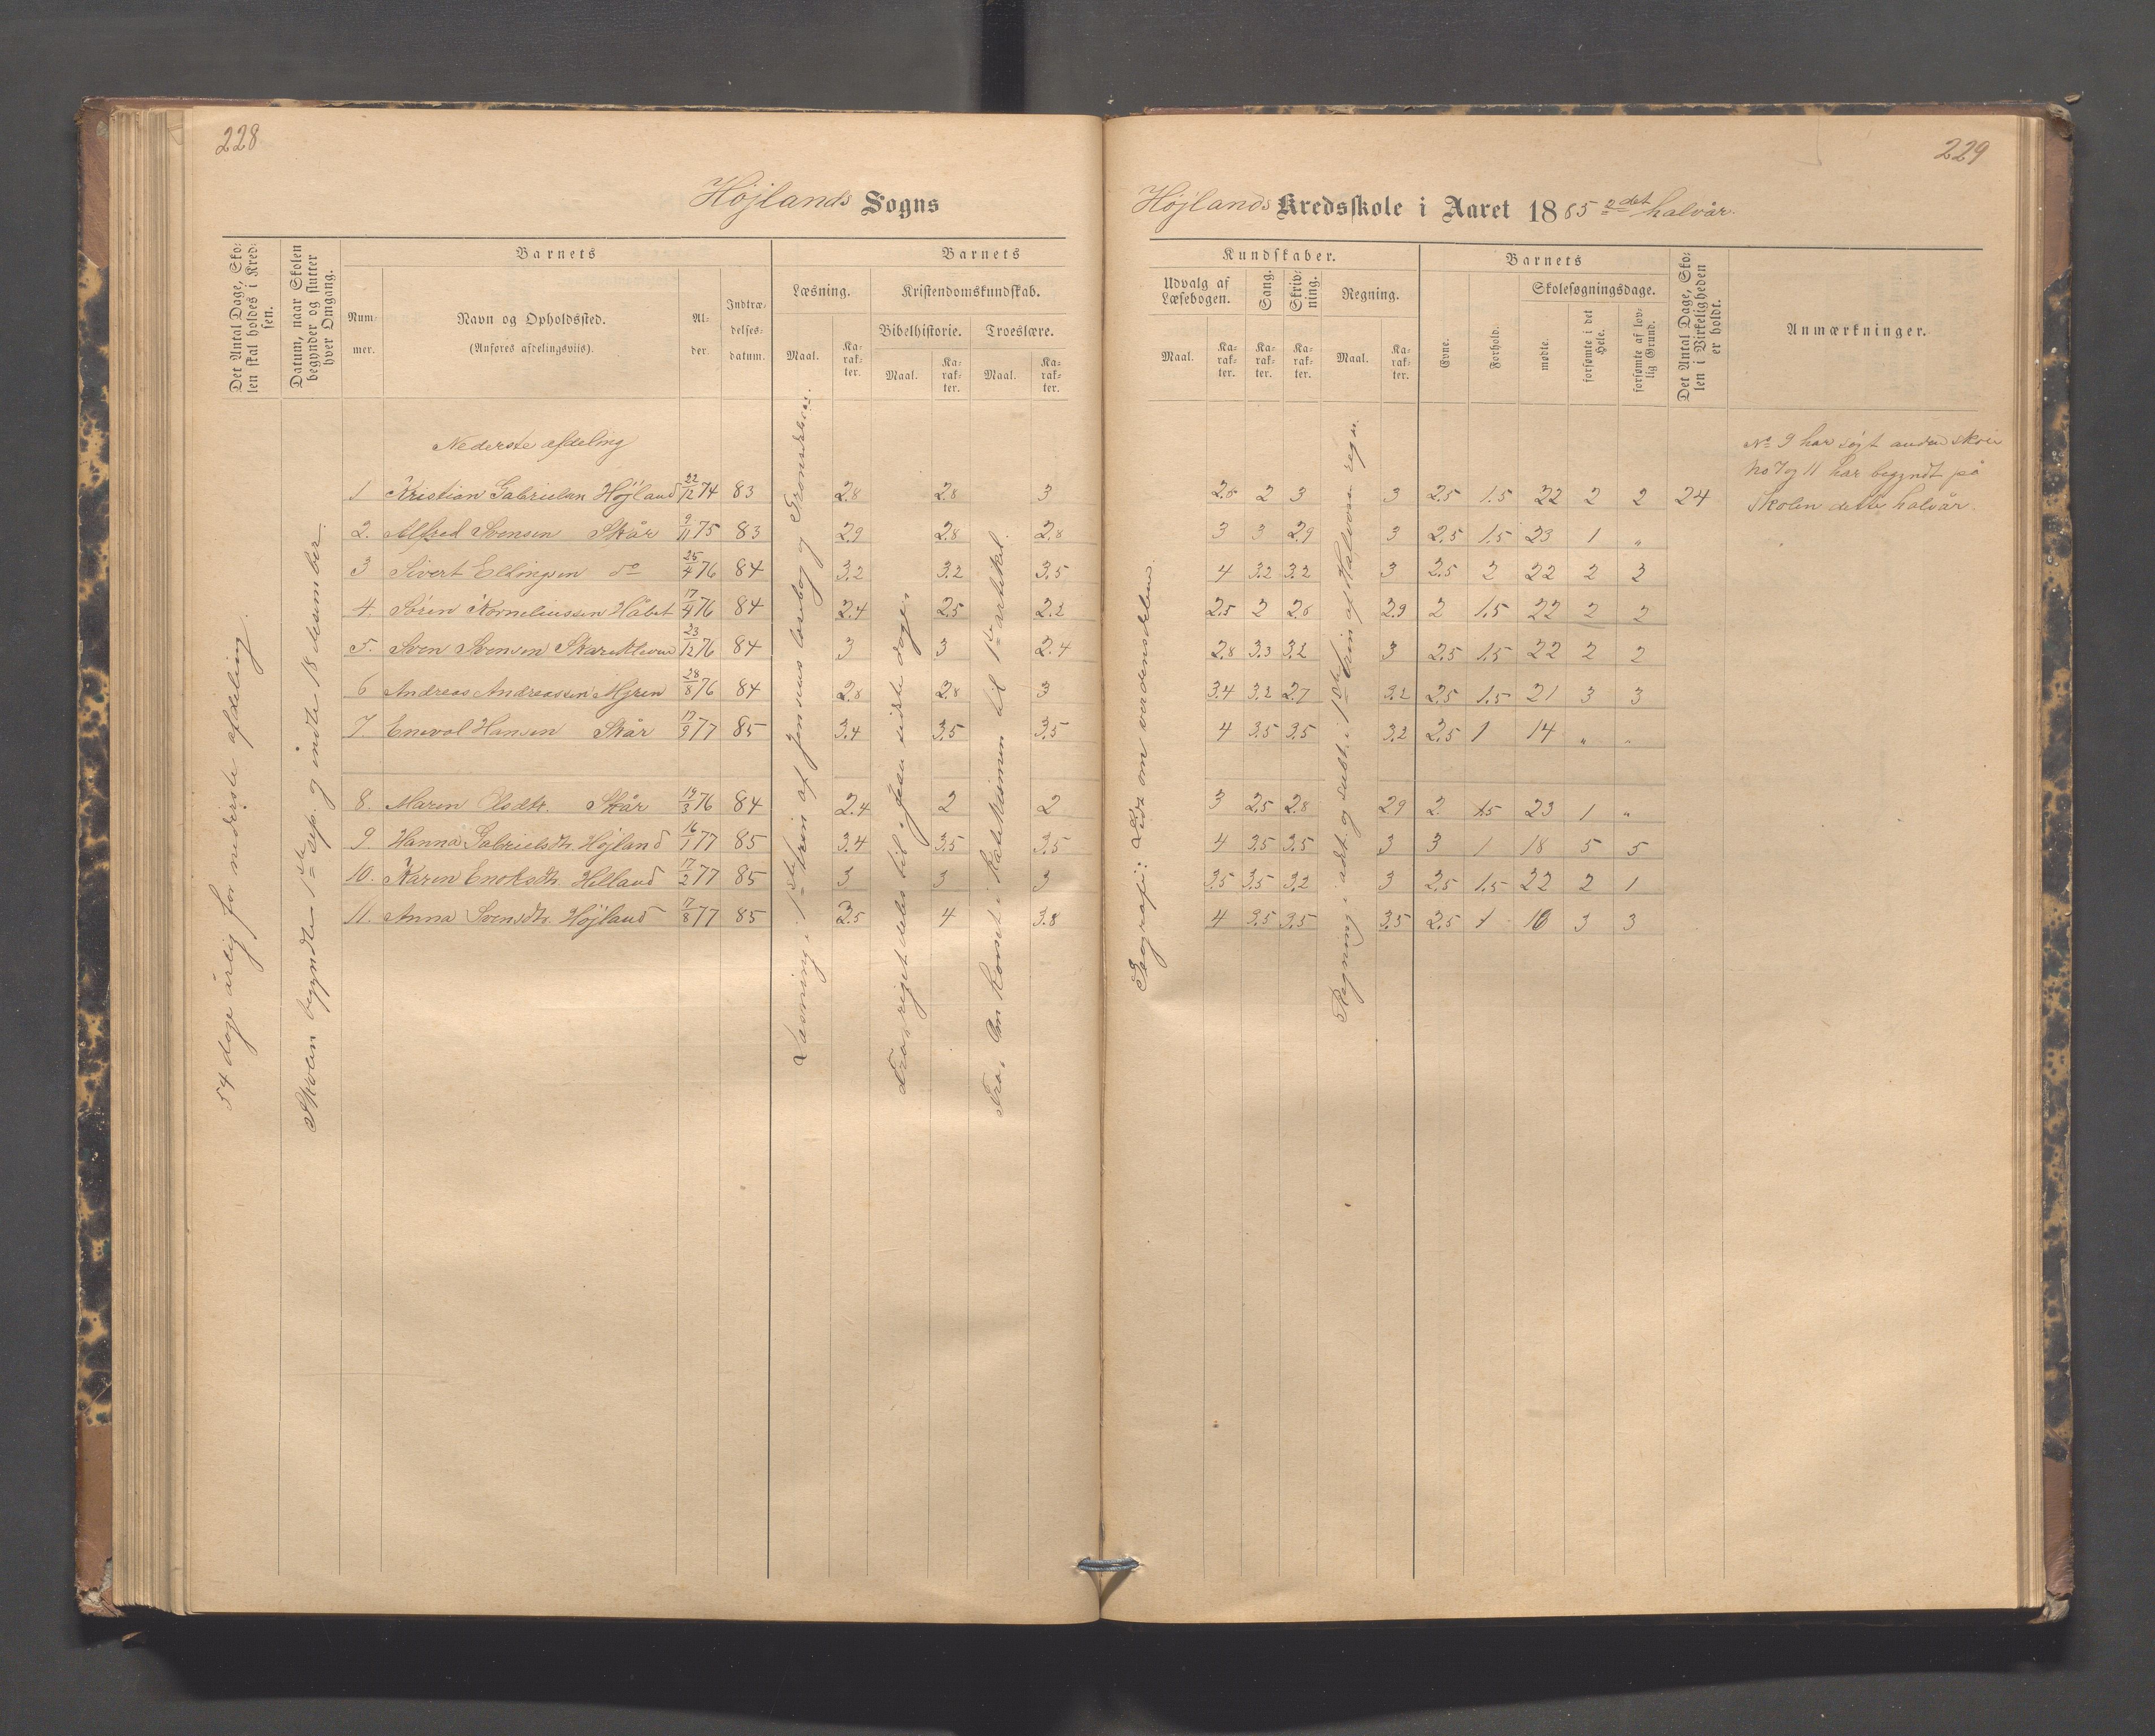 228
Højlands Sogns
Det Antal Dage, Sko-
len skal holdes i Kred-
sen.
Datum, naar Skolen
begynder og slutter
hver Omgang.
Barnets
Num-
mer.
Navn og Opholdssted.
(Anføres afdelingsviis).
Al-
der.
Indtræ-
delses-
datum.
Barnets
Læsning.
Kristendomskundskab.
Bibelhistorie.
Troeslære.
Maal.
Ka-
rak-
ter.
Maal.
Ka-
rak-
ter.
Maal.
Ka-
rak-
ter.
54 dage årlig for nederste afdeling.
Skolen begyndte 1ste sep. og endte 18 desember.
Læsning i 1ste trin af Jensens læsebog og
Fra riget deles til Jesu sidste dage
Fra Om Kons i Katekismen til 1ste artikel.
Nederste afdeling
1 Kristian Gabrielsen Højland 22/12 74 83 2.8 2.8 3
2. Alfred Svensen Skår 9/11 75 83 2.9 2.8 2.8
3 Sivert Ellingsen do 25/4 76 84 3.2 3.2 3.5
4. Søren Korneliussen Håbet 17/4 76 84 2.4 2.5 2.2
5. Sven Svensen Skarekleven 23/12 76 84 3 3 2.4
6 Andreas Andreassen Myren 28/8 76 84 2.8 2.8 3
7 Enevol Hansen Skår 17/9 77 85 3.4 3.5 3.5
8. Maren Olsdtr. Skår 19/3 76 84 2.4 2 2
9. Hanna Gabrielsdtr. Højland 16/1 77 85 3.4 3.5 3.5
10. Karen Enoksdtr. Helland 17/2 77 85 3 3 3
11. Anna Svensdtr. Højland 17/8 77 85 3.5 4 3.8
229
Højlands Kredsskole i Aaret 1885 2det halvår.
Kundskaber.
Udvalg af
Læsebogen.
Sang.
Skriv-
ning.
Regning.
Maal.
Ka-
rak-
ter.
Ka-
rak-
ter.
Ka-
rak-
ter.
Maal.
Ka-
rak-
ter.
Barnets
Evne.
Forhold.
Skolesøgningsdage.
mødte.
forsømte i det
Hele.
forsømte af lov-
lig Grund.
Det Antal Dage, Sko-
len i Virkeligheden
er holdt.
Anmærkninger.
Geografi: Lidt om verdensdelene.
Regning i adt. og subt. i 1ste trin af Halvorsen regn.
2.6 2 3 3 2.5 1.5 22 2 2 24
3 3 2.9 3 2.5 1.5 23 1 "
4 3.2 3.2 3 2.5 2 22 2 2
2.5 2 2.6 2.9 2 1.5 22 2 2
2.8 3.3 3.2 3 2.5 1.5 22 2 2
3.4 3.2 2.7 3.2 2.5 1.5 21 3 3
4 3.5 3.5 3.2 2.5 1 14 " "
3 2.5 2.8 2.9 2 1.5 23 1 "
4 3.5 3.5 3 3 1 18 5 5
3.5 3.5 3.2 3 2.5 1.5 22 2 1
4 3.5 3.5 3.5 2.5 1 16 3 3
No 9 har søgt anden skole
No 7 og 11 har begyndt på
Skolen dette halvår.